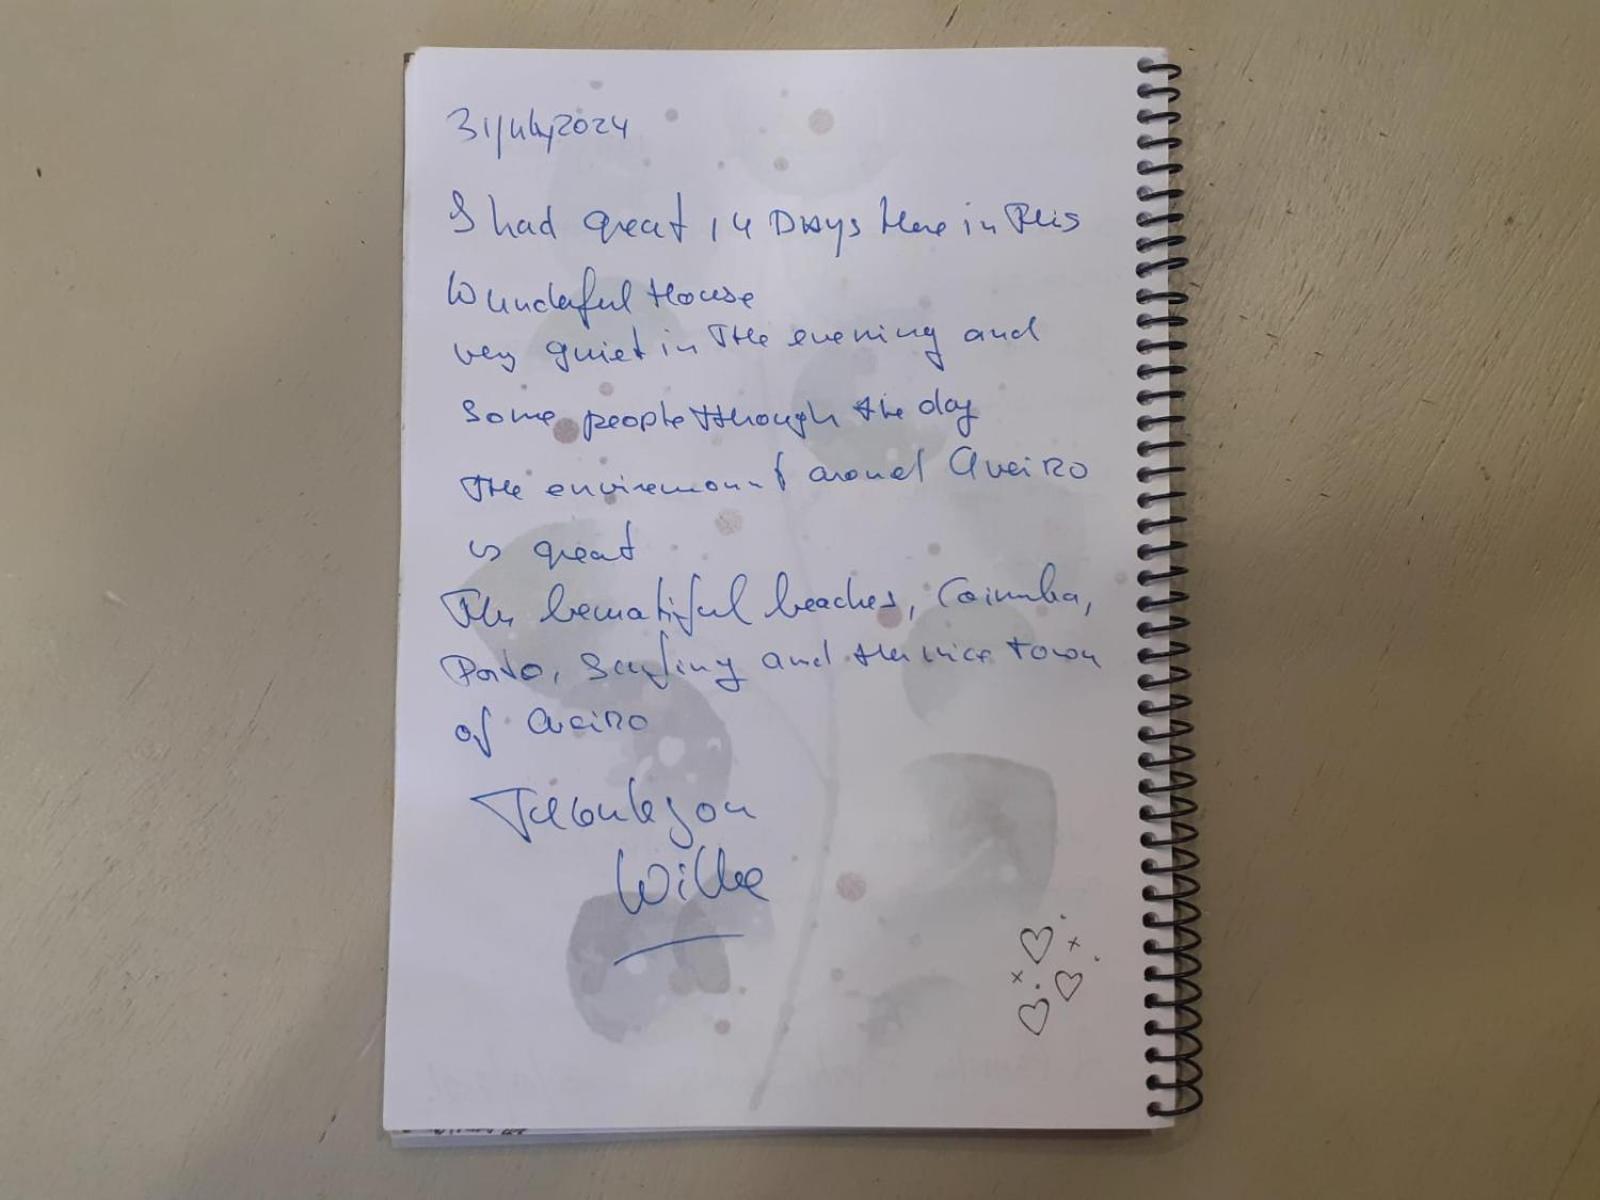 31 July 2024
I had great 14 Days here in this
Wunderful House
very quiet in the evening and
some people through the day
The enviremount around Aveiro
is great
The beautiful beaches, Coimba,
Porto, Surfing and the nice town
of Aveiro
Thank you